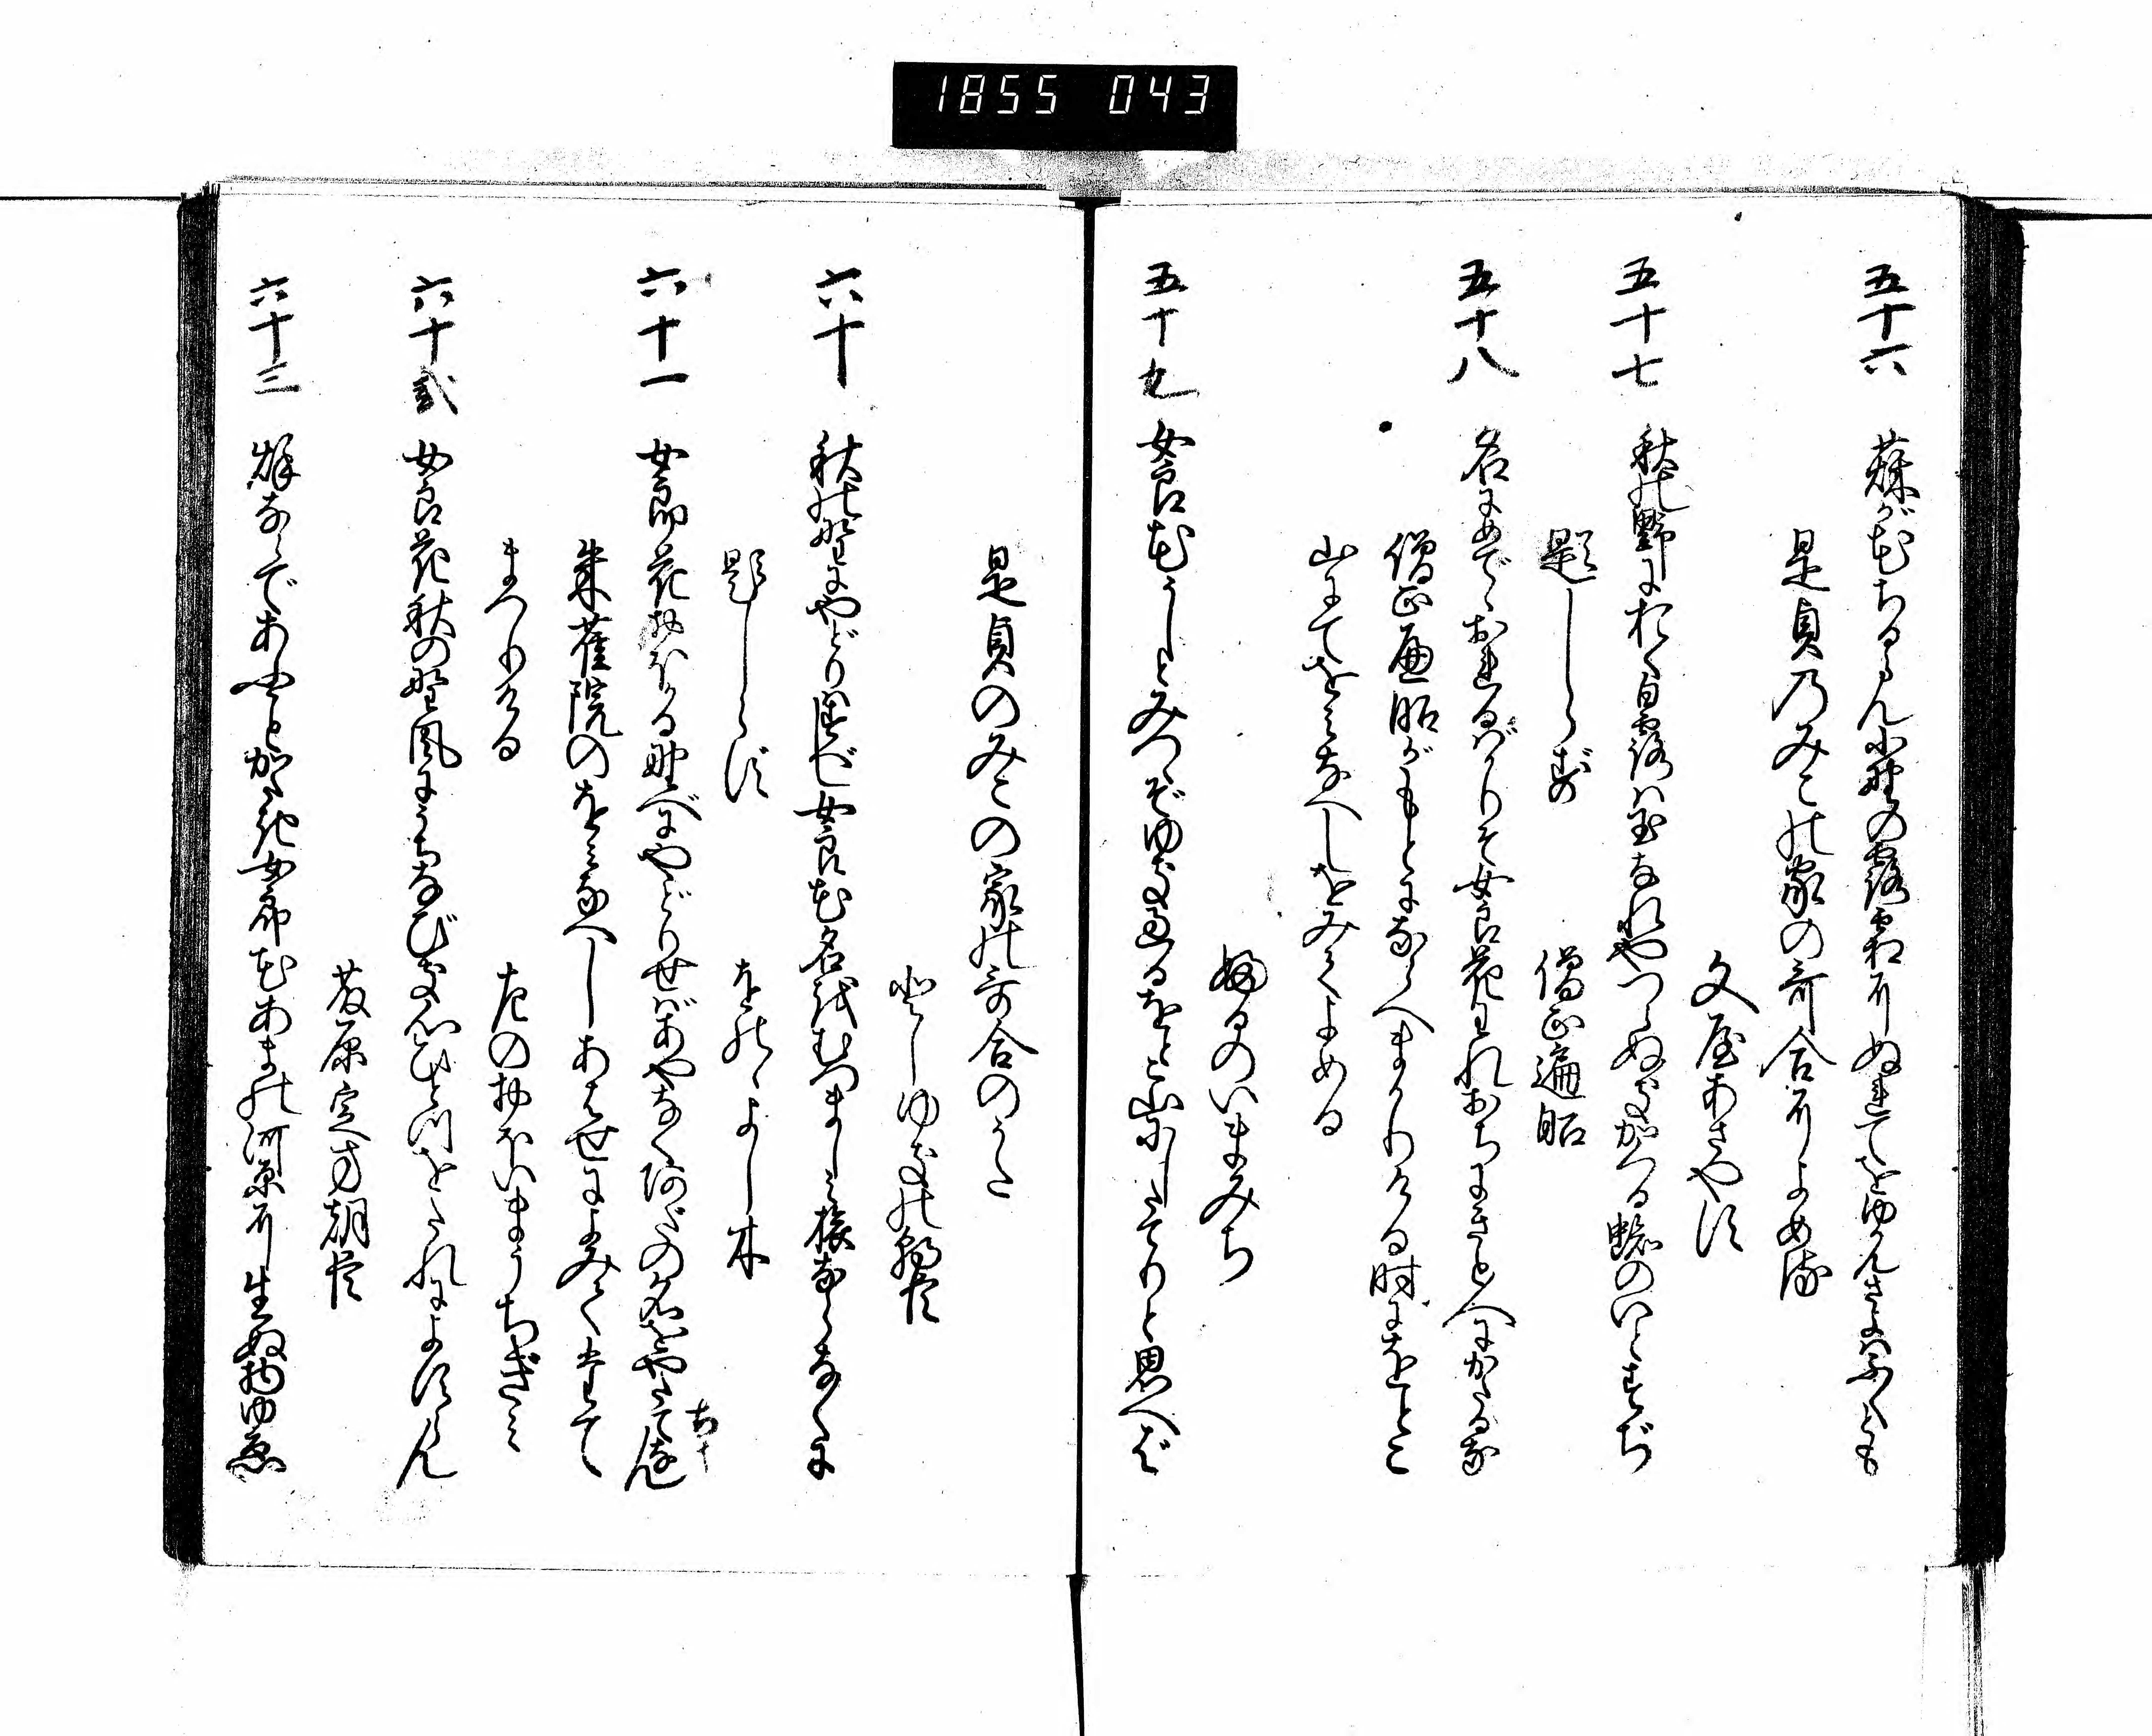 1855 043
五十六 萩が花ちるらん小野の露霜にぬれてをゆかんさよはふくとも
是貞のみこの家の哥合によめる
文屋あさやす
五十七 秋の野におく白露は玉なれやつらぬきかくる蜘のいとすぢ
題しらず 僧正遍昭
五十八 名にめでゝおれるばかりぞ女良花われおちにきと人にかたるな
僧正遍昭がもとにならへまかりける時にをとこ
山にてをみなへしをみてよめる
ふるのいまみち
五十九 女良花うしとみつゝぞゆき過るをとこ山にしたてりと思へば
是貞のみこの家の哥合のうた
としゆきの朝臣
六十 秋の野にやどりはすべし女良花名をむつましみ旅ならなくに
題しらず をのゝよし木
六十一 女郎花おほかる野べにやどりせばあやなくあだの名をやたちなん
朱雀院のをみなへしあはせによみてたて
まつりける 左のおほいまうちぎみ
六十弐 女良花秋の野風にうちなびき心ひとつをたれによすらん
藤原定方朝臣
六十三 秋ならであふことかたき女郎花あまの河原に生ぬ物ゆゑ